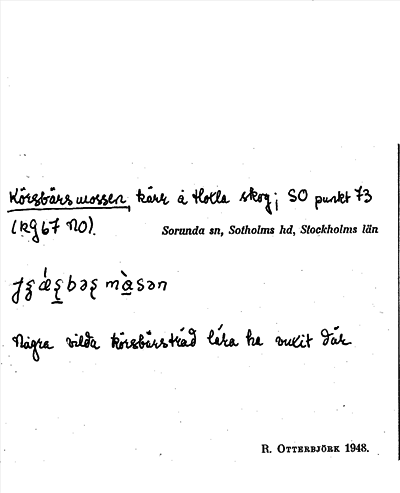 Körsbärsmossen, kärr å Hotla skog; SO punkt 73
(kg 67 NO).
Sorunda sn, Sotholms hd, Stockholms län
Några vilda körsbärsträd lära ha vuxit där
R. OTTERBJÖRK 1948.